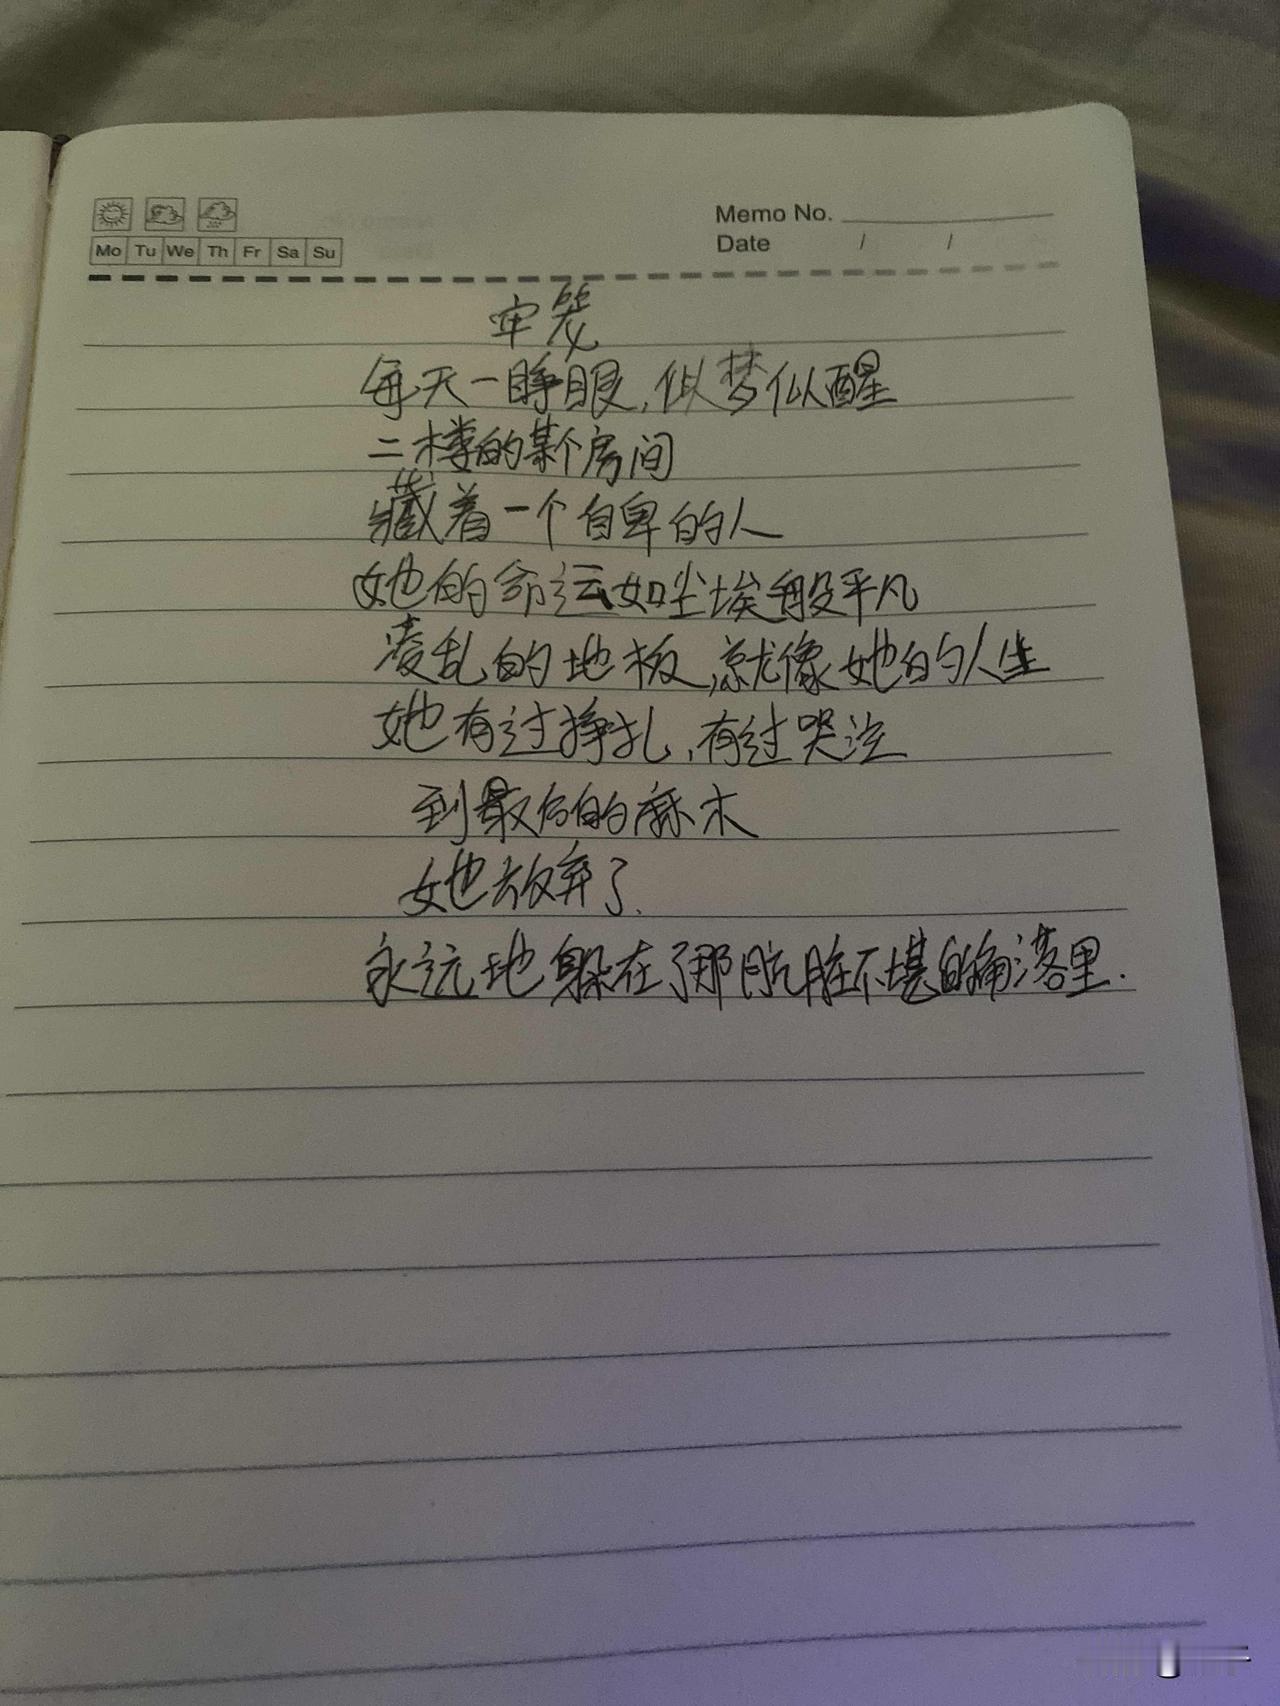 Memo No.
Mo Tu We Th Fr Sa Su
Date / /
牢笼
每天一睁眼,似梦似醒
二楼的某个房间
藏着一个自卑的人
她的命运如尘埃般平凡
凌乱的地板,就像她的人生
她有过挣扎,有过哭泣
到最后的麻木
她放弃了.
永远地躲在了那肮脏不堪的角落里.